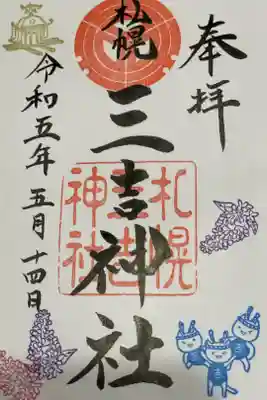 奉拝
札幌
三吉神社
札幌
三吉
神社
令和五年五月十四日
吉